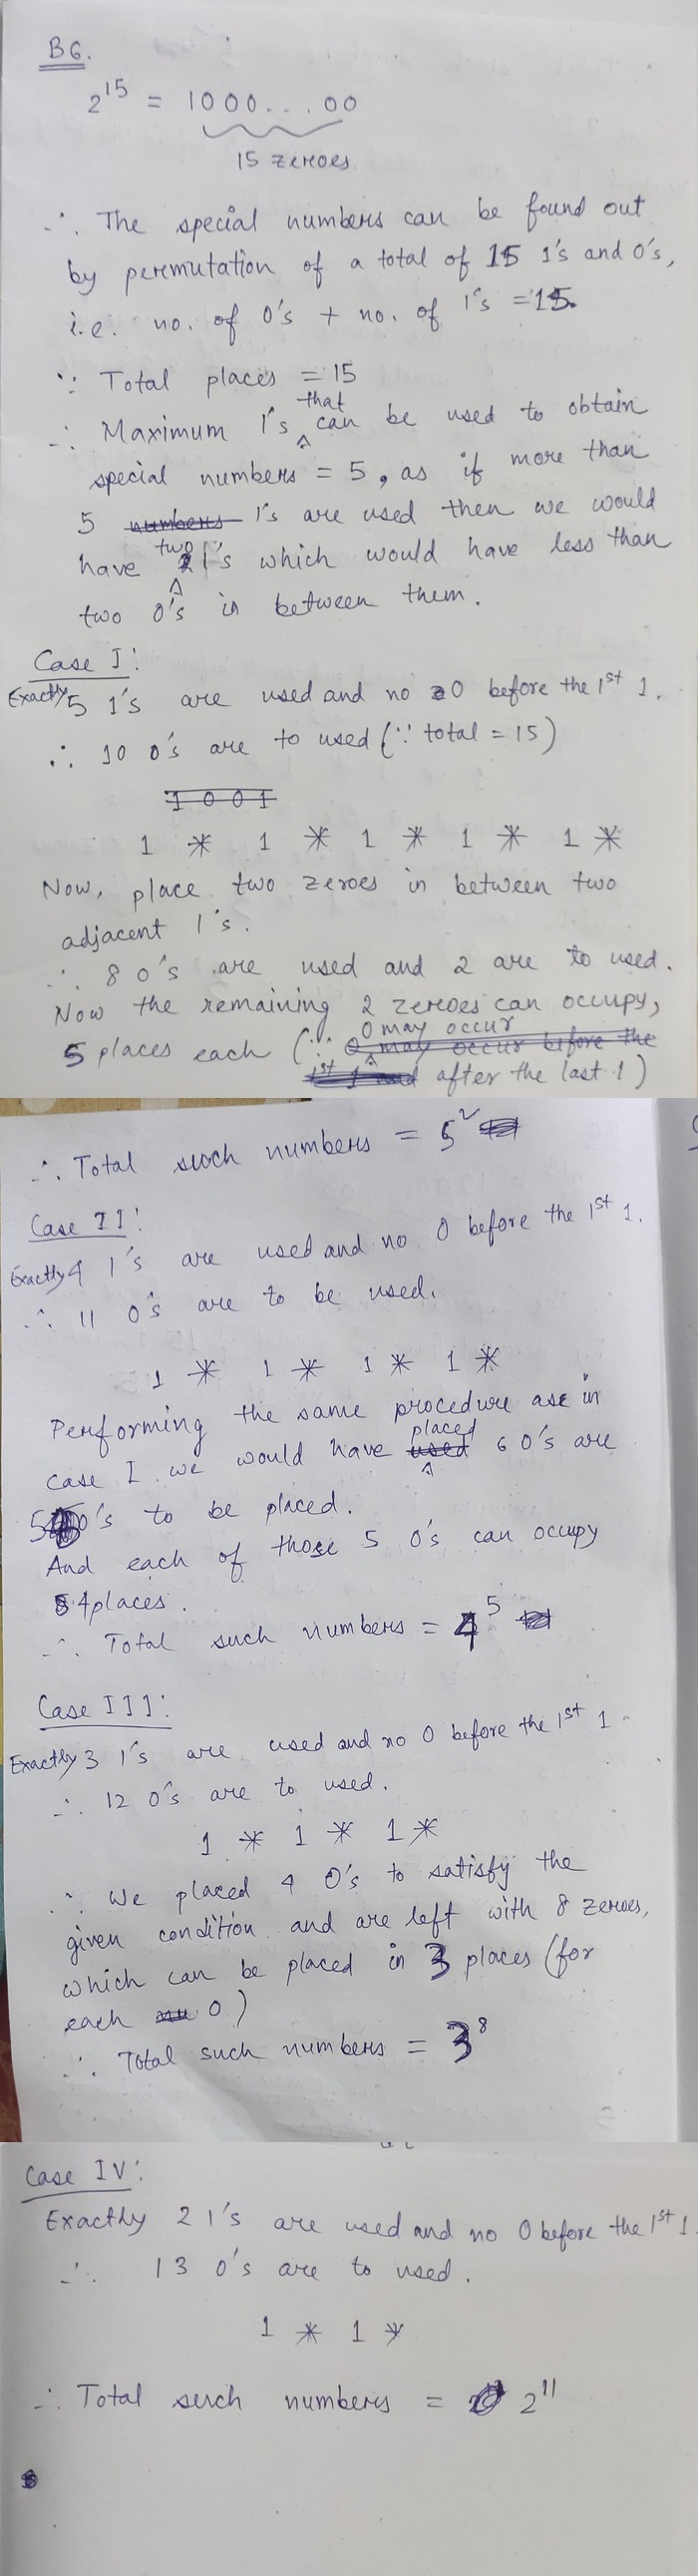 B6.
2^15 = 1000...00
15 zeroes
∴ The special numbers can be found out
by permutation of a total of 15 1's and 0's,
i.e. no. of 0's + no. of 1's = 15.
∵ Total places = 15
∴ Maximum 1's that can be used to obtain
special numbers = 5, as if more than
5 numbers 1's are used then we would
have two 1's which would have less than
two 0's in between them.
Case I:
Exactly 5 1's are used and no 0 before the 1st 1.
∴ 10 0's are to used (∵ total = 15)
1 0 0 1
1 * 1 * 1 * 1 * 1 *
Now, place two zeroes in between two
adjacent 1's.
∴ 8 0's are used and 2 are to used.
Now the remaining 2 zeroes can occupy,
5 places each (∵ 0 may occur before the
0 may occur
1st 1 and after the last 1)
∴ Total such numbers = 5^2
Case II:
Exactly 4 1's are used and no 0 before the 1st 1.
∴ 11 0's are to be used.
1 * 1 * 1 * 1 *
Performing the same procedure as in
case I we would have used placed 6 0's are
5 0's to be placed.
And each of those 5 0's can occupy
4 places.
∴ Total such numbers = 4^5
Case III:
Exactly 3 1's are used and no 0 before the 1st 1.
∴ 12 0's are to used.
1 * 1 * 1 *
∴ We placed 4 0's to satisfy the
given condition and are left with 8 zeroes,
which can be placed in 3 places (for
each 0)
∴ Total such numbers = 3^8
Case IV:
Exactly 2 1's are used and no 0 before the 1st 1.
∴ 13 0's are to used.
1 * 1 *
∴ Total such numbers = 2^11